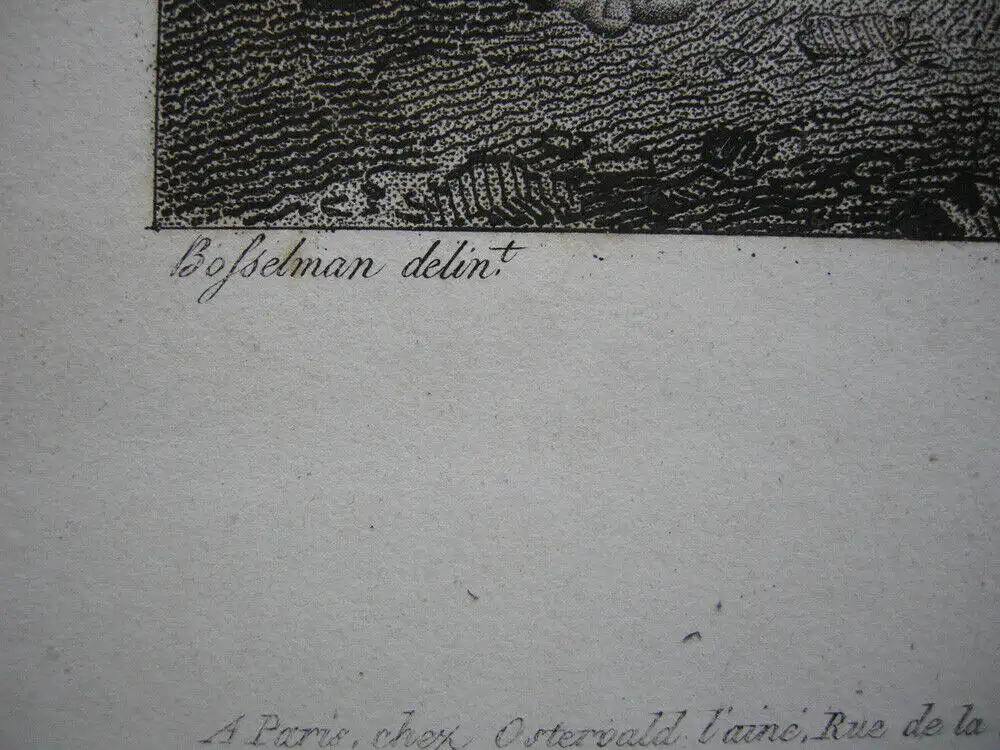 Boſselman delin.t
A Paris, chez Ostervald l'ainé, Rue de la